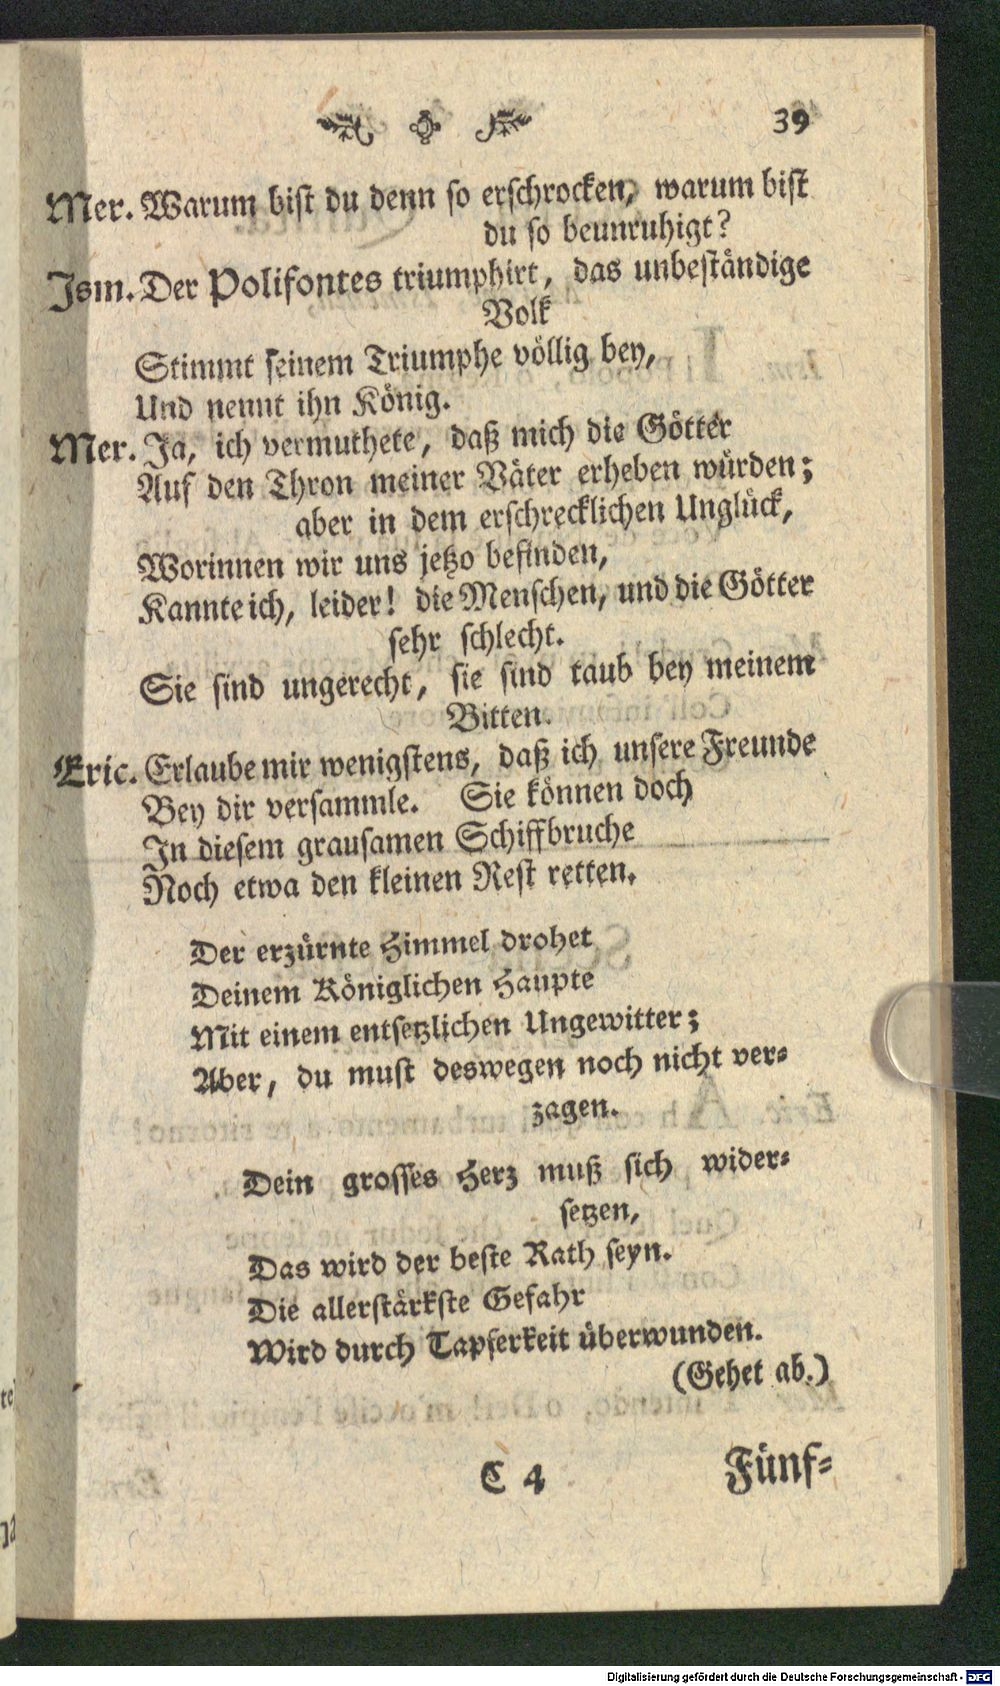 39
Mer. Warum bist du denn so erschrocken, warum bist
du so beunruhigt?
Ism. Der Polifontes triumphirt, das unbeständige
Volk
Stimmt seinem Triumphe völlig bey,
Und nennt ihn König.
Mer. Ja, ich vermuthete, daß mich die Götter
Auf den Thron meiner Väter erheben würden;
aber in dem erschrecklichen Unglück,
Worinnen wir uns jetzo befinden,
Kannte ich, leider! die Menschen, und die Götter
sehr schlecht.
Sie sind ungerecht, sie sind taub bey meinem
Bitten.
Eric. Erlaube mir wenigstens, daß ich unsere Freunde
Bey dir versammle. Sie können doch
In diesem grausamen Schiffbruche
Noch etwa den kleinen Rest retten.
Der erzürnte Himmel drohet
Deinem Königlichen Haupte
Mit einem entsetzlichen Ungewitter;
Aber, du must deswegen noch nicht ver-
zagen.
Dein grosses Herz muß sich wider-
setzen,
Das wird der beste Rath seyn.
Die allerstärkste Gefahr
Wird durch Tapferkeit überwunden.
(Gehet ab.)
C 4 Fünf-
Digitalisierung gefördert durch die Deutsche Forschungsgemeinschaft - DFG